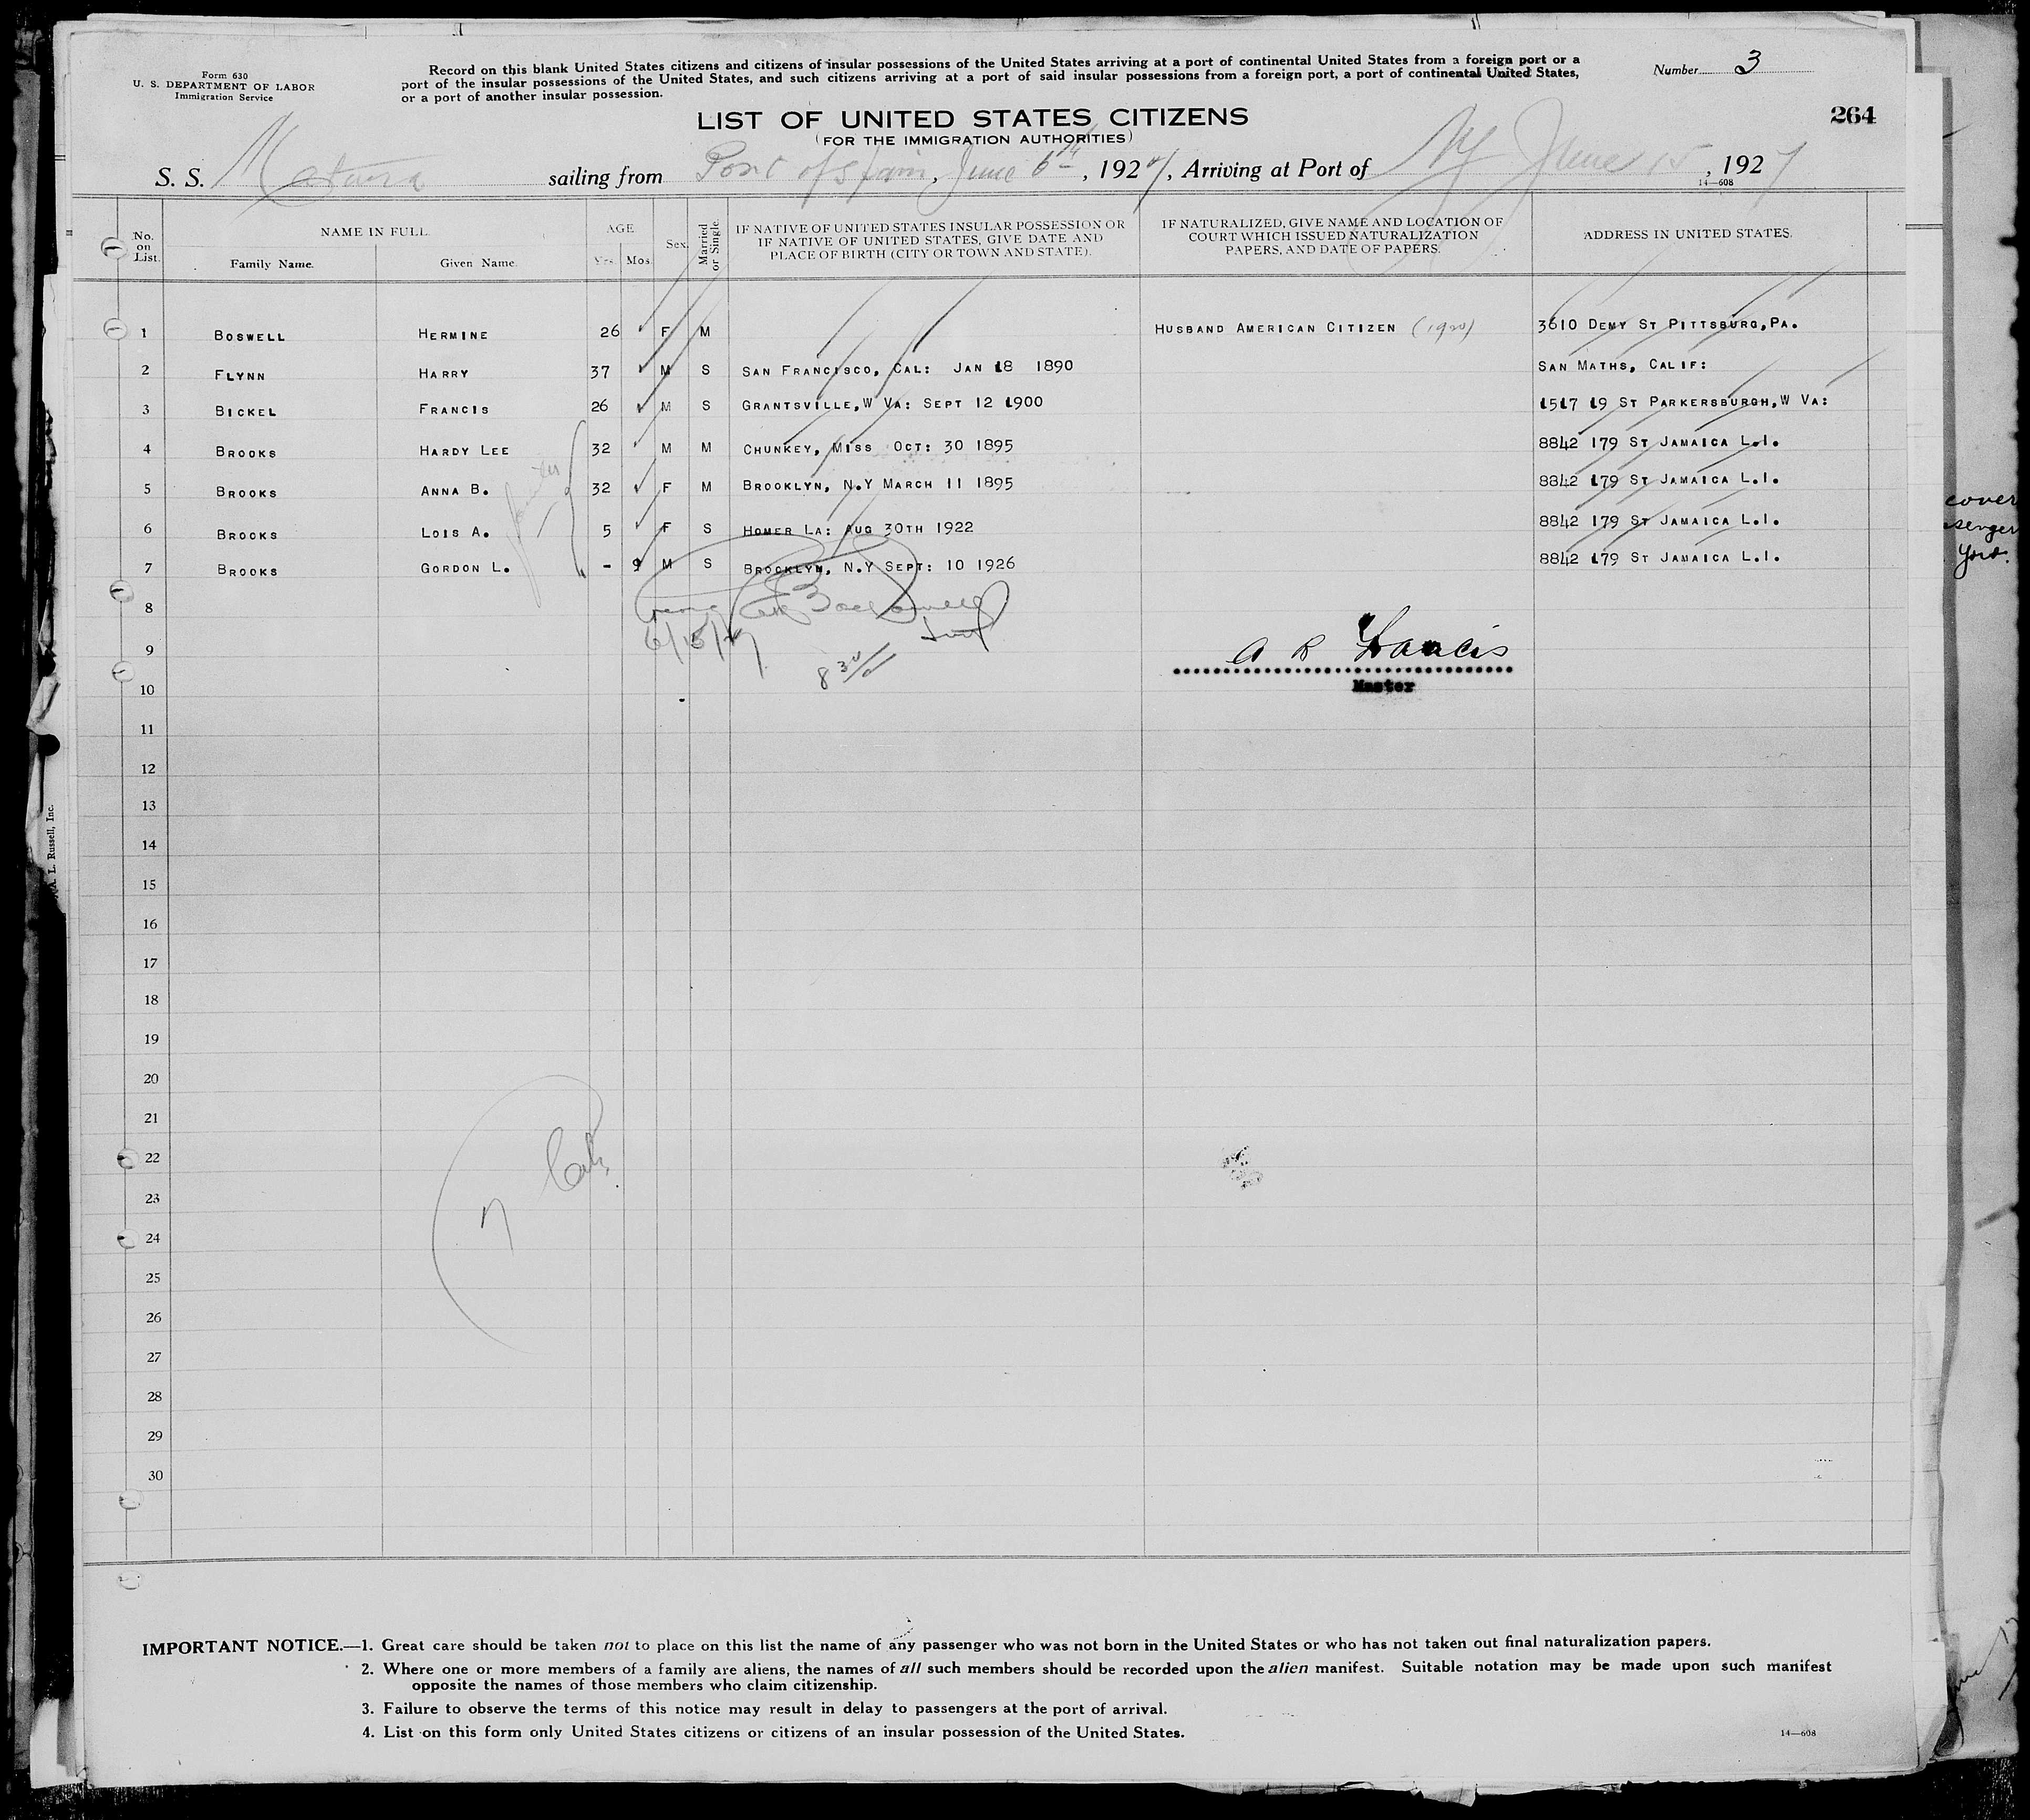 Form 630
U. S. DEPARTMENT OF LABOR
Immigration Service
Record on this blank United States citizens and citizens of insular possessions of the United States arriving at a port of continental United States from a foreign port or a
port of the insular possessions of the United States, and such citizens arriving at a port of said insular possessions from a foreign port, a port of continental United States,
or a port of another insular possession.
Number 3
264
LIST OF UNITED STATES CITIZENS
(FOR THE IMMIGRATION AUTHORITIES)
S. S. Matura sailing from Port of Spain, June 6th, 1927, Arriving at Port of NY June 15, 1927
14—608
No. on List. NAME IN FULL. Family Name. Given Name. AGE Yrs. Mos. Sex. Married or Single. IF NATIVE OF UNITED STATES INSULAR POSSESSION OR IF NATIVE OF UNITED STATES, GIVE DATE AND PLACE OF BIRTH (CITY OR TOWN AND STATE). IF NATURALIZED, GIVE NAME AND LOCATION OF COURT WHICH ISSUED NATURALIZATION PAPERS, AND DATE OF PAPERS. ADDRESS IN UNITED STATES.
1 BOSWELL HERMINE 26 F M HUSBAND AMERICAN CITIZEN (1920) 3610 DEMY ST PITTSBURG, PA.
2 FLYNN HARRY 37 M S SAN FRANCISCO, CAL: JAN 18 1890 SAN MATHS, CALIF:
3 BICKEL FRANCIS 26 M S GRANTSVILLE, W VA: SEPT 12 1900 1517 19 ST PARKERSBURGH, W VA:
4 BROOKS HARDY LEE 32 M M CHUNKEY, MISS OCT: 30 1895 8842 179 ST JAMAICA L.I.
5 BROOKS ANNA B. 32 F M BROOKLYN, N.Y MARCH 11 1895 8842 179 ST JAMAICA L.I.
6 BROOKS LOIS A. 5 F S HOMER LA: AUG 30TH 1922 8842 179 ST JAMAICA L.I.
7 BROOKS GORDON L. - 9 M S BROCKLYN, N.Y SEPT: 10 1926 8842 179 ST JAMAICA L.I.
8
6/15/27
9
8 30
A R Francis
Master
10
11
12
13
14
15
16
17
18
19
20
21
22
23
7
24
25
26
27
28
29
30
A. L. Russell, Inc.
IMPORTANT NOTICE.—1. Great care should be taken not to place on this list the name of any passenger who was not born in the United States or who has not taken out final naturalization papers.
2. Where one or more members of a family are aliens, the names of all such members should be recorded upon the alien manifest. Suitable notation may be made upon such manifest
opposite the names of those members who claim citizenship.
3. Failure to observe the terms of this notice may result in delay to passengers at the port of arrival.
4. List on this form only United States citizens or citizens of an insular possession of the United States.
14—608